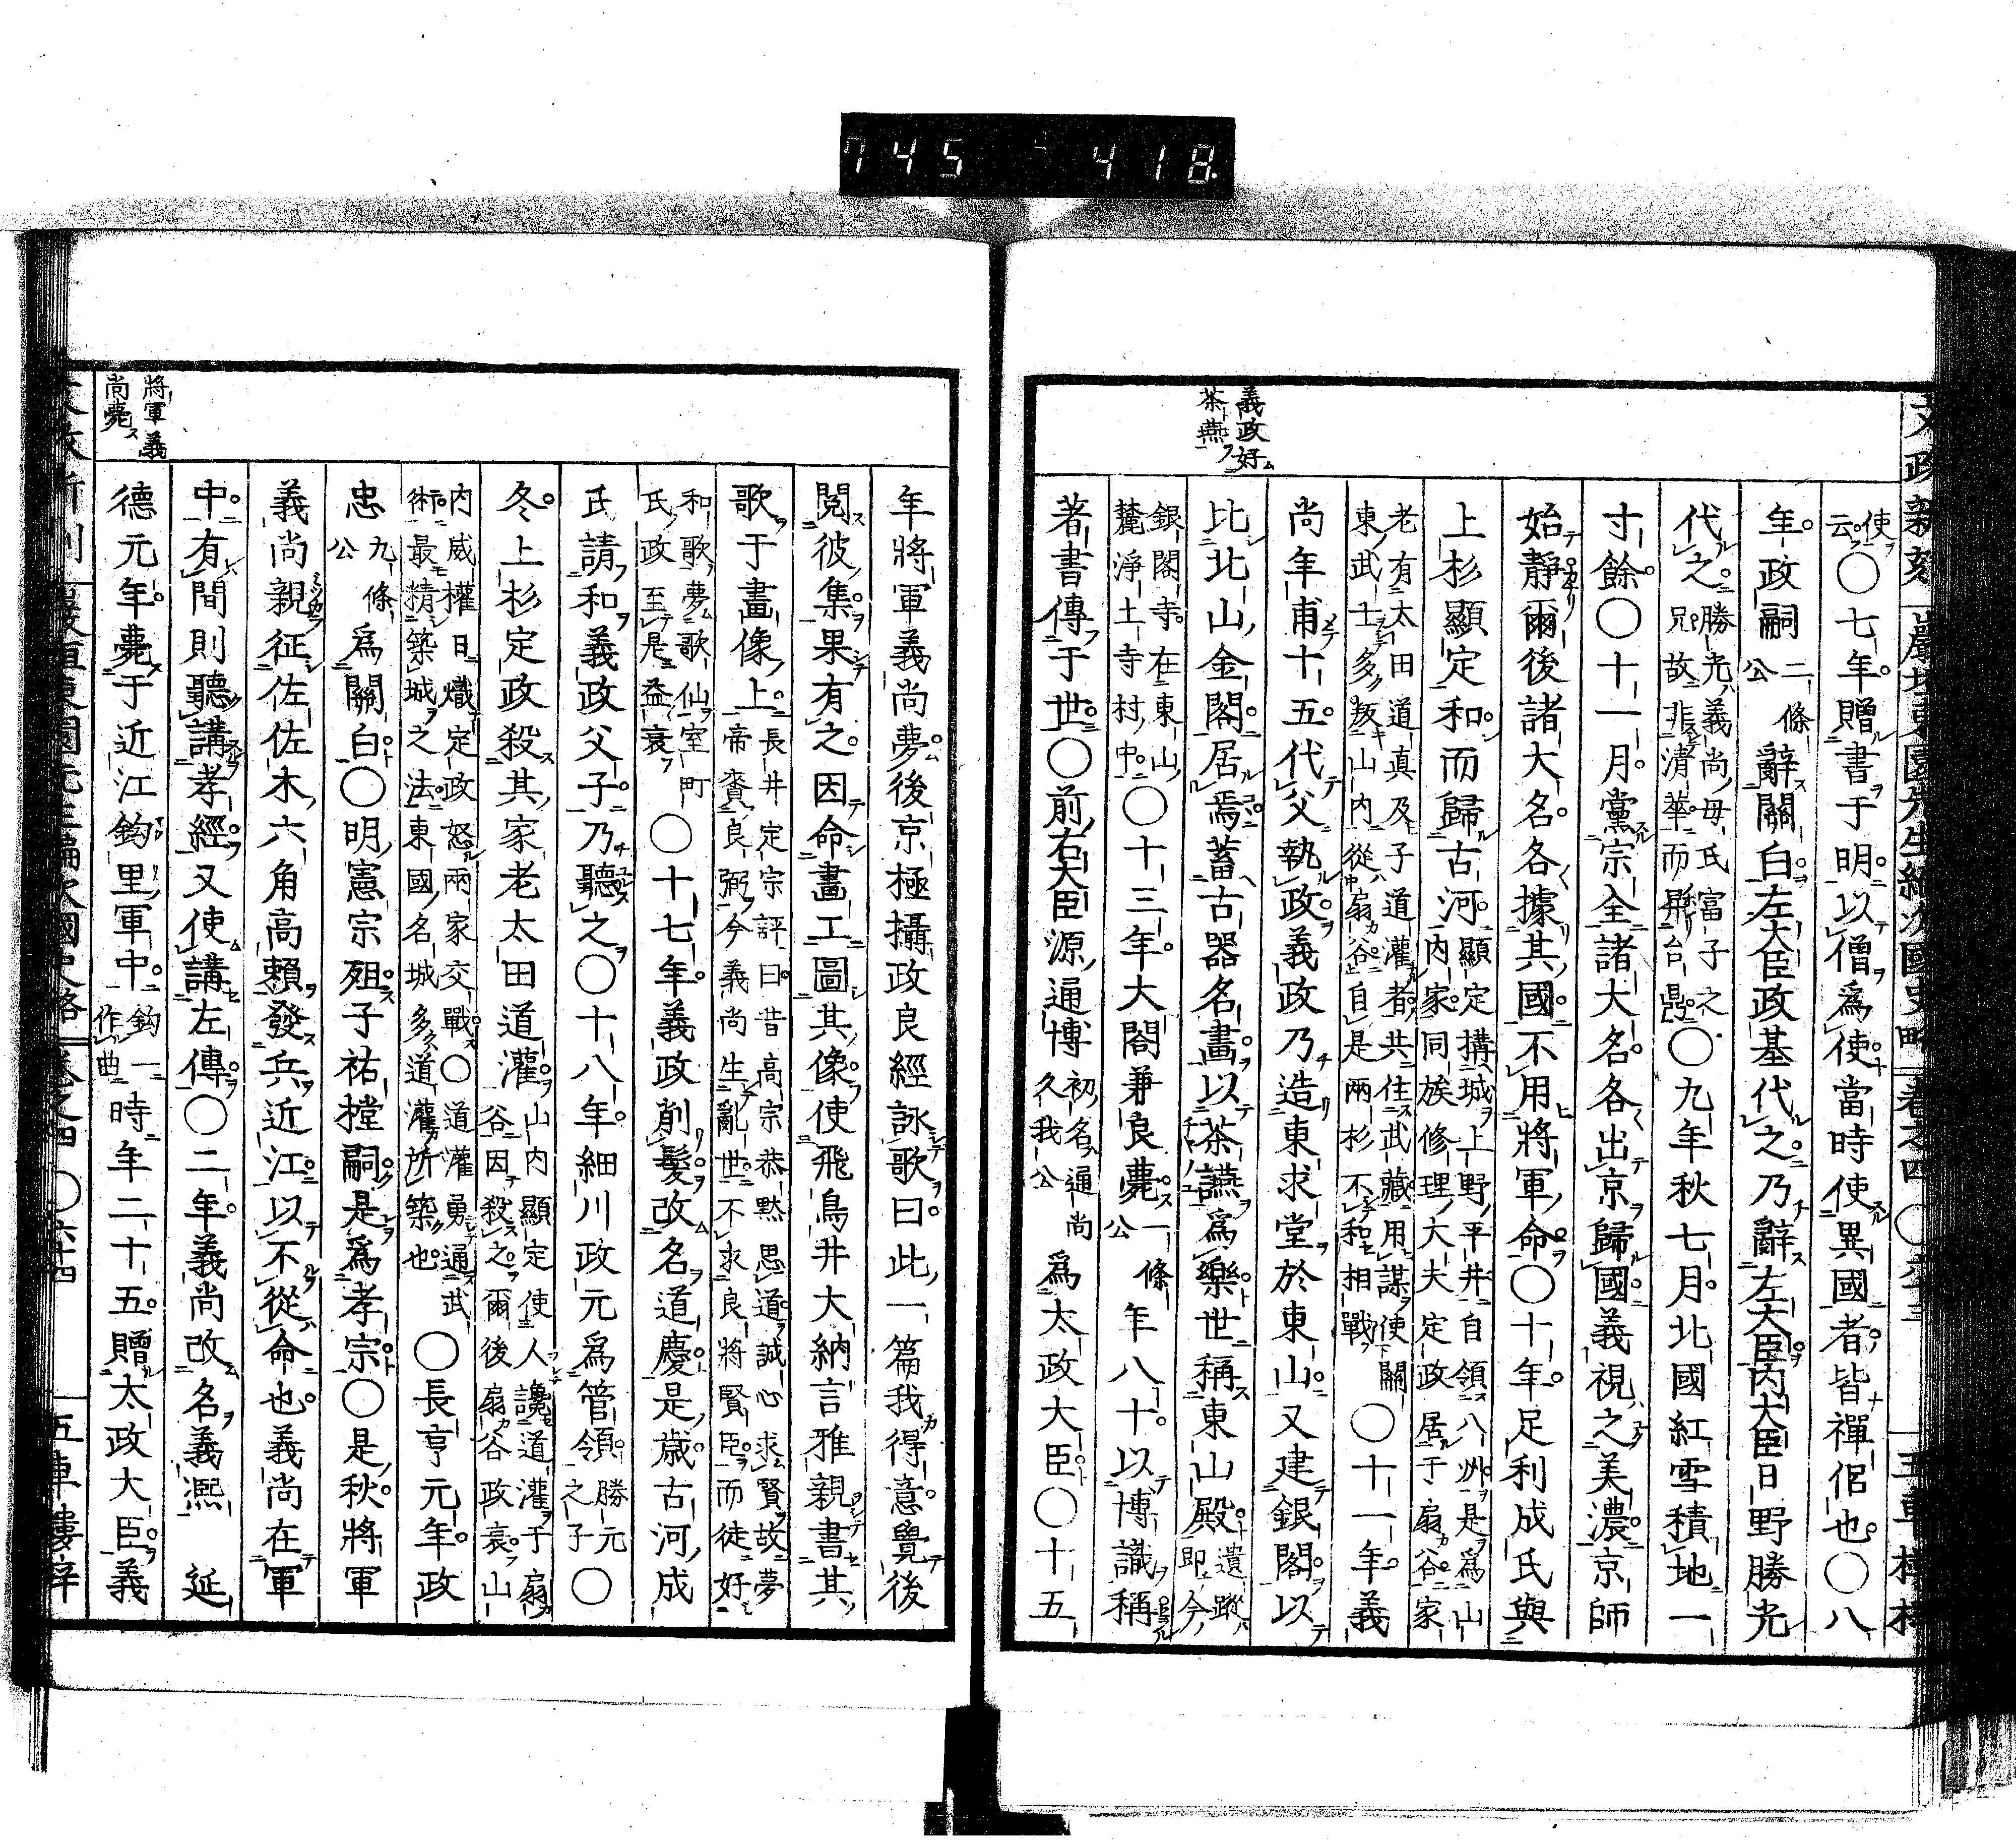 745 418
義政好
茶燕
使
云〇七年贈書于明以僧爲使當時使異國者皆禪侶也〇八
年政嗣二條公辭關白左大臣政基代之乃辭左大臣内大臣日野勝光
代之勝光義尚母氏富子之
兄故非清華而昇台鼎〇九年秋七月北國紅雪積地一
寸餘〇十一月黨宗全諸大名各出京歸國義視之美濃京師
始靜爾後諸大名各據其國不用將軍命〇十年足利成氏與
上杉顯定和而歸古河顯定搆城上野平井自領八州是爲山
内家同族修理大夫定政居于扇谷家
老有太田道真及子道灌者共住武藏用謀使關
東武士多叛山内從扇谷自是兩杉不和相戰〇十一年義
尚年甫十五代父執政義政乃造東求堂於東山又建銀閣以
比北山金閣居焉蓄古器名畫以茶讌爲樂世稱東山殿遺蹤
即今
銀閣寺在東山
麓淨土寺村中〇十三年大閤兼良薨一條公年八十以博識稱
著書傳于世〇前右大臣源通博初名通尚
久我公爲太政大臣〇十五
年將軍義尚夢後京極攝政良經詠歌曰此一篇我得意覺後
閲彼集果有之因命畫工圖其像使飛鳥井大納言雅親書其
歌于畫像上長井定宗評曰昔高宗恭默思道誠心求賢故夢
帝賚良弼今義尚生亂世不求良將賢臣而徒好
和歌夢歌仙室町
氏政至是益衰〇十七年義政削髮改名道慶是歳古河成
氏請和義政父子乃聽之〇十八年細川政元爲管領勝元
之子〇
冬上杉定政殺其家老太田道灌山内顯定使人讒道灌于扇
谷因殺之爾後扇谷政衰山
内威權日熾定政怒兩家交戰〇道灌勇通武
術最精築城之法東國名城多道灌所築也〇長亨元年政
忠九條公爲關白〇明憲宗殂子祐樘嗣是爲孝宗〇是秋將軍
義尚親征佐佐木六角高賴發兵近江以不從命也義尚在軍
中有間則聽講孝經又使講左傳〇二年義尚改名義凞 延
德元年薨于近江鈎里軍中鈎一
作曲時年二十五贈太政大臣義
將軍義
尚薨